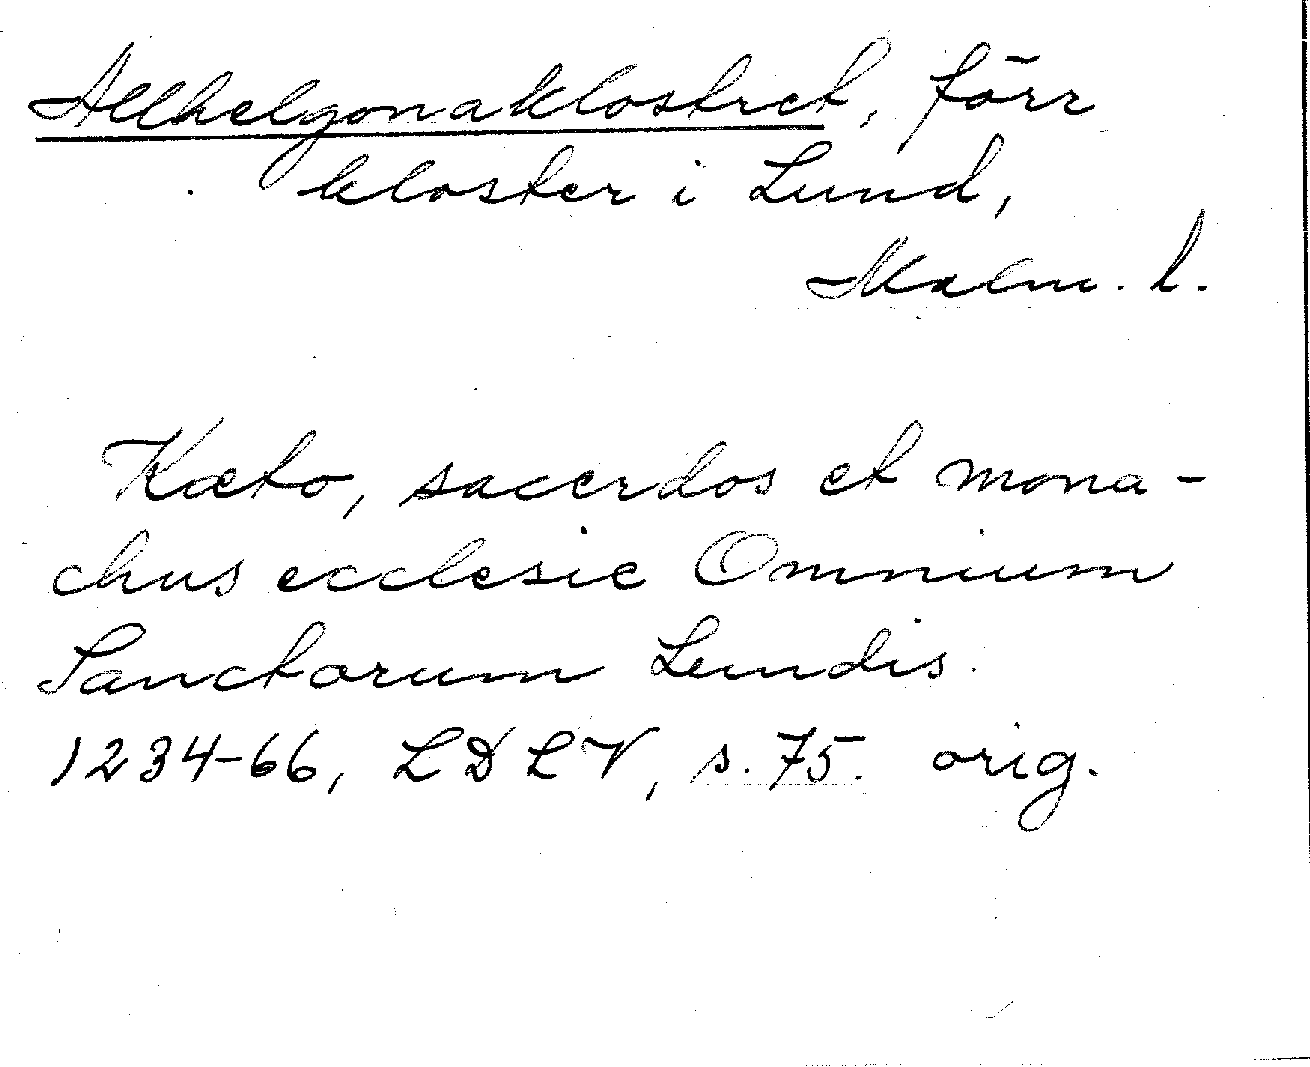 Allhelgonaklostret, förr
kloster i Lund,
Malm. l.
Kæto, sacerdos et mona-
chus ecclesie Omnium
Sanctorum Lundis.
1234-66, LDLV, s. 75. orig.